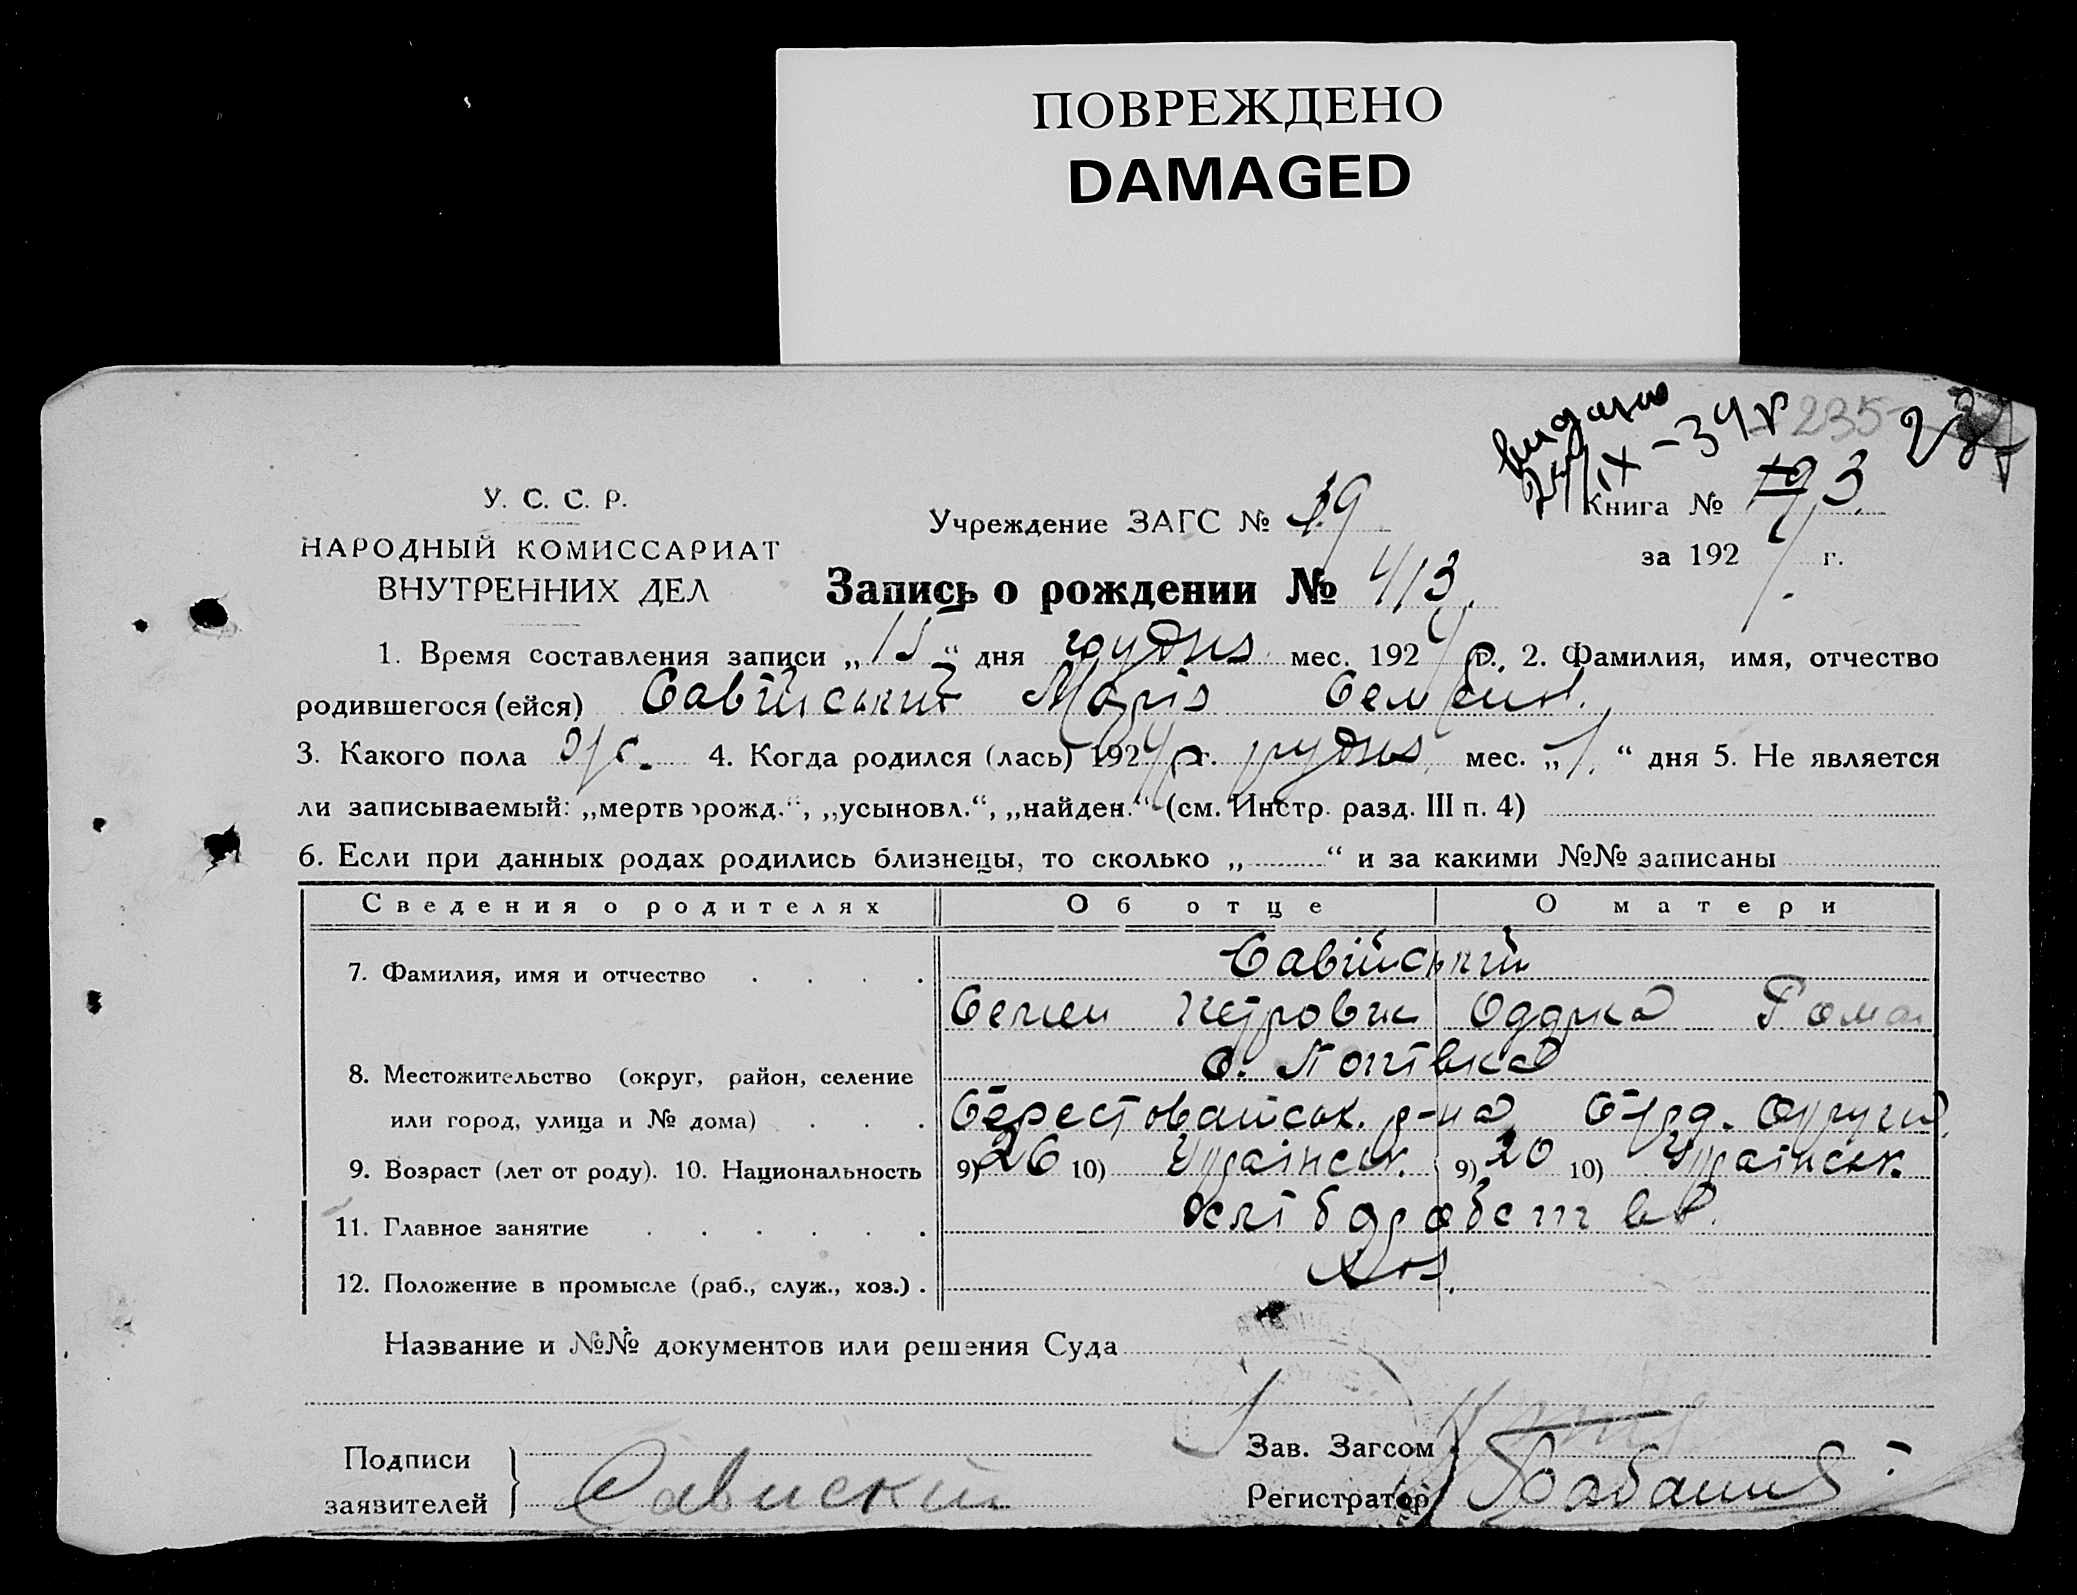 ПОВРЕЖДЕНО
DAMAGED
видано
235
IX - 34 р
У. С. С. Р.
НАРОДНЫЙ КОМИССАРИАТ
ВНУТРЕННИХ ДЕЛ
Учреждение ЗАГС № 19
Книга № 3
за 1924 г.
Запись о рождении № 413.
1. Время составления записи „15“ дня грудня мес. 1924 р., 2. Фамилия, имя, отчество
родившегося (ейся) Савійський Марія Сем
3. Какого пола ж. 4. Когда родился (лась) 1924 р. грудня мес. „1.“ дня 5. Не является
ли записываемый: „мертворожд.“, „усыновл.“, „найден.“ (см. Инстр. разд. III п. 4)
6. Если при данных родах родились близнецы, то сколько „ “ и за какими №№ записаны
Сведения о родителях Об отце О матери
7. Фамилия, имя и отчество Савійський
Семен Петрович Одарка Роман
8. Местожительство (округ, район, селение с. Попівка
или город, улица и № дома) Берестовайськ. р-на Б-рд. Округи
9. Возраст (лет от роду). 10. Национальность 9) 26 10) Українськ. 9) 20 10) Українськ.
11. Главное занятие хліборобство.
12. Положение в промысле (раб., служ., хоз.) Хоз.
Название и №№ документов или решения Суда
Подписи
заявителей Сависский
Зав. Загсом
Регистратор